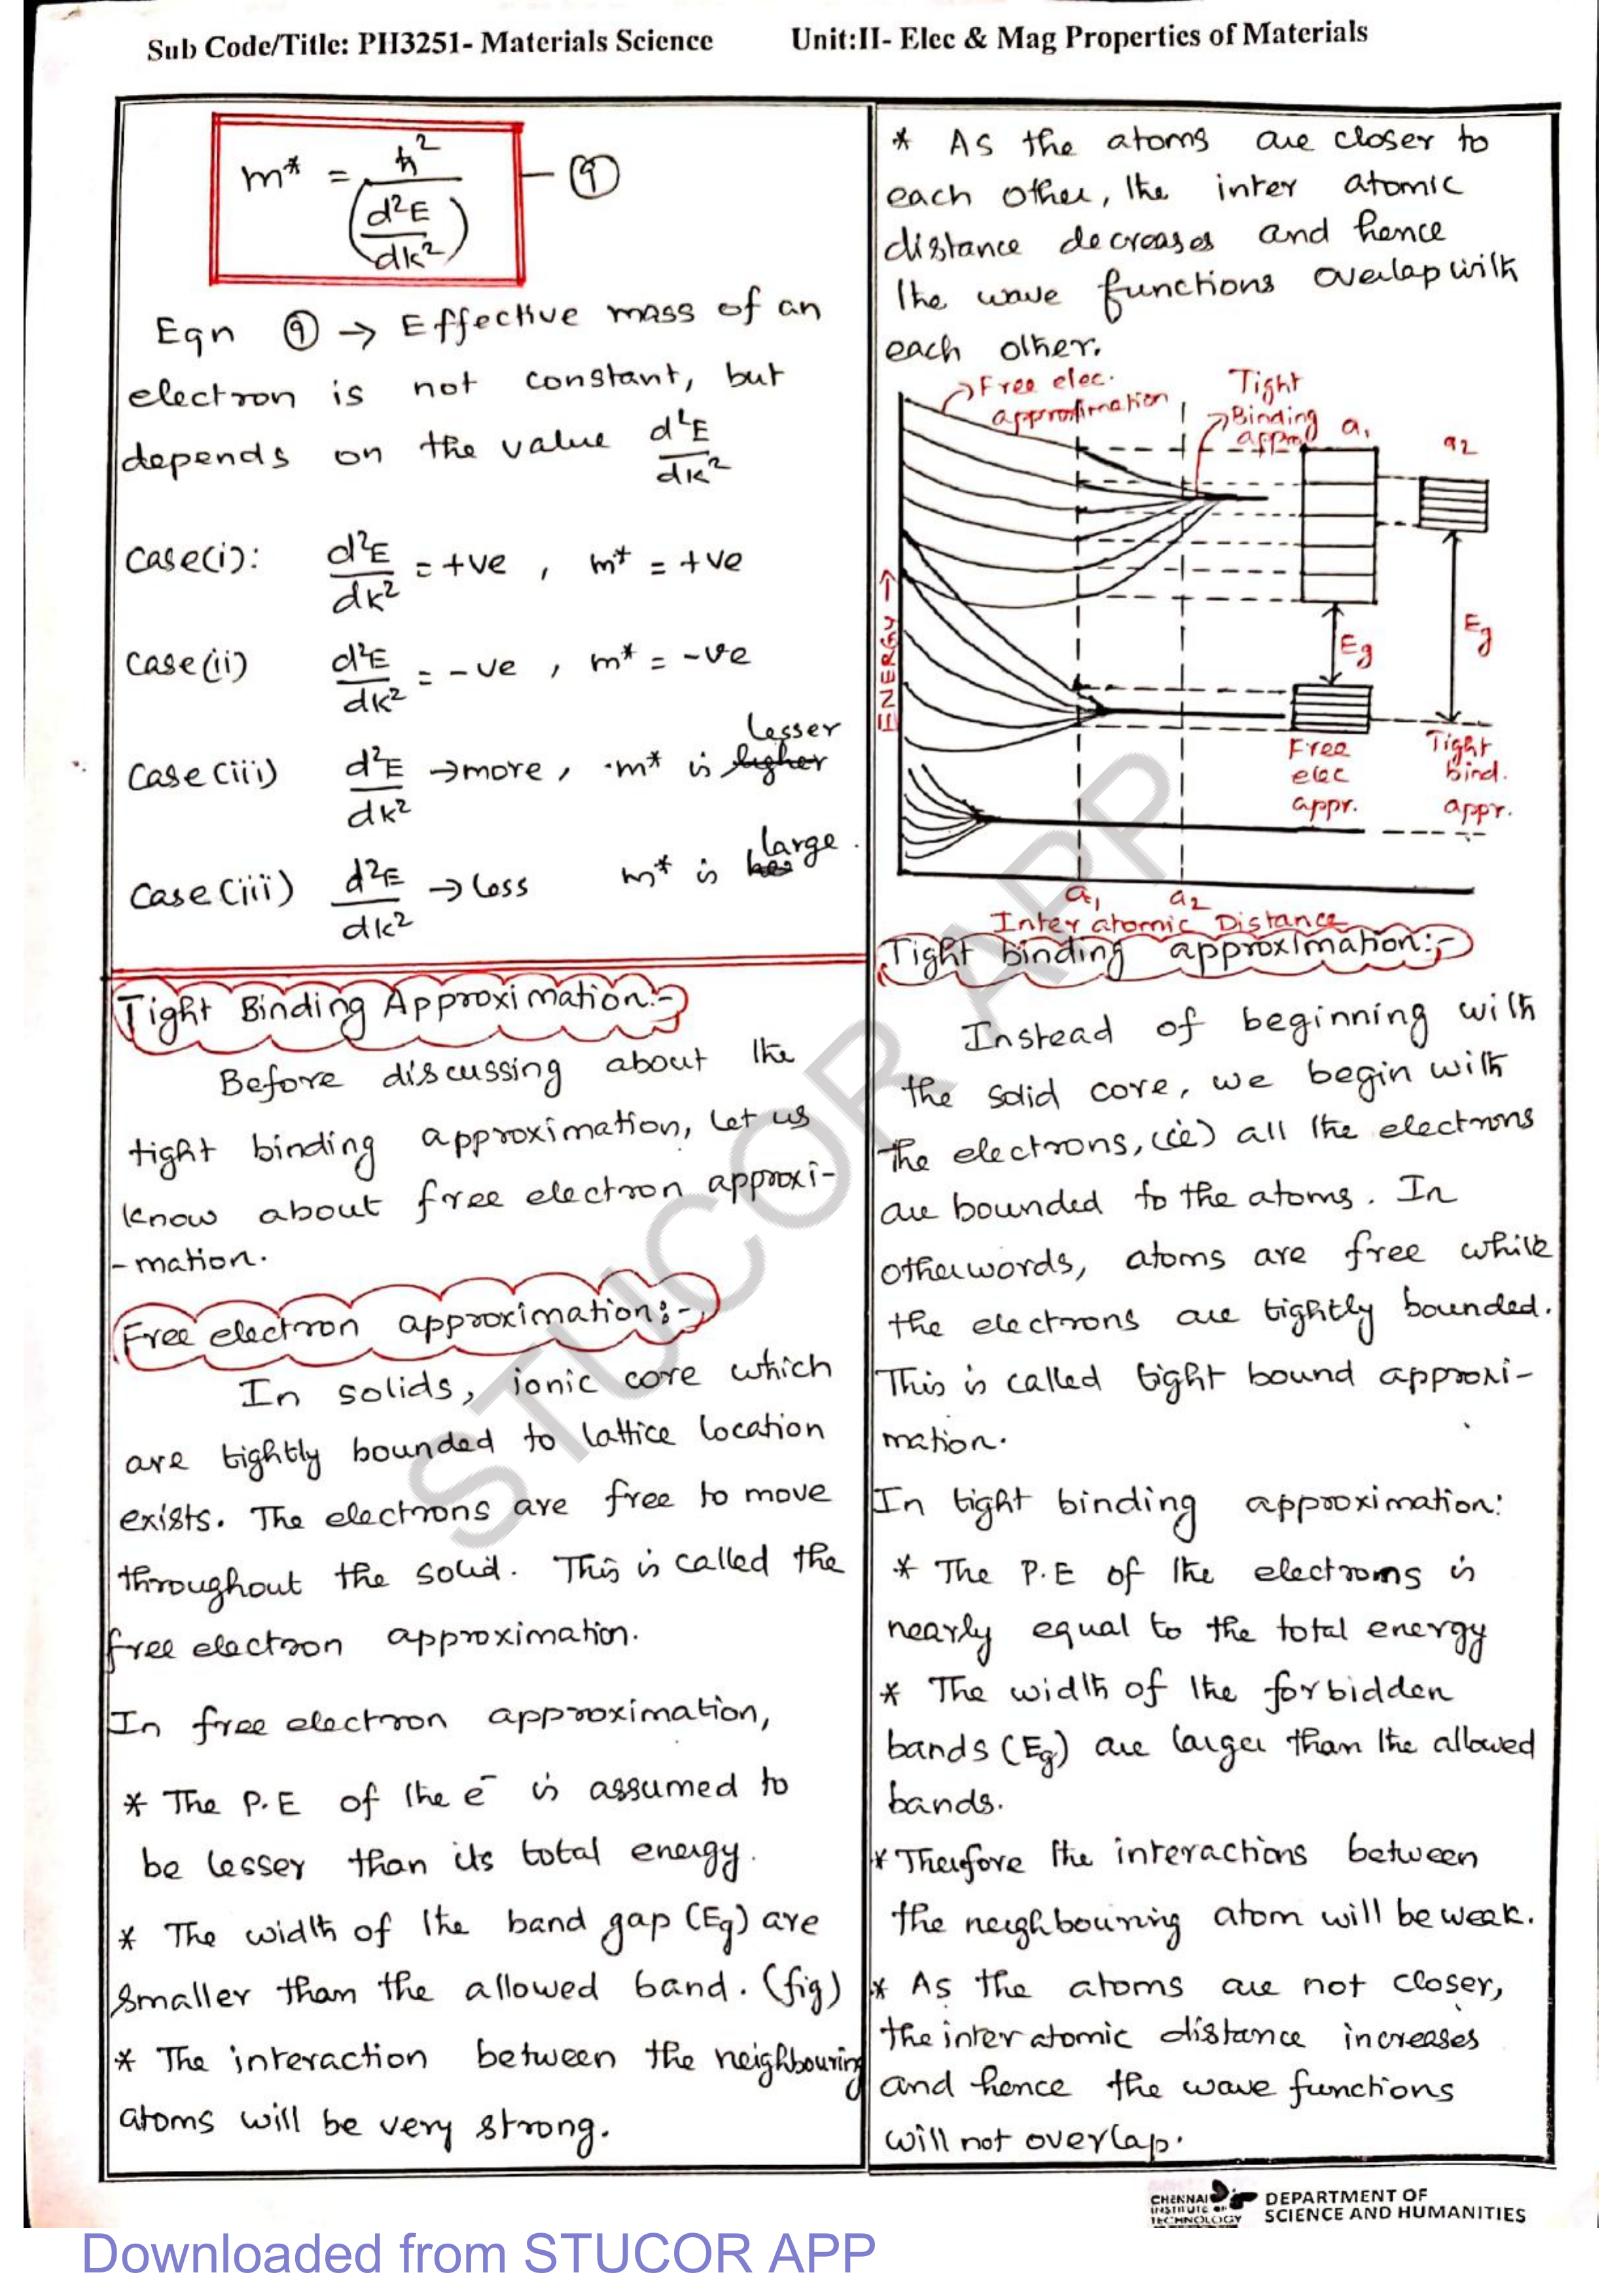 Sub Code/Title: PH3251- Materials Science Unit:II- Elec & Mag Properties of Materials
m* = ħ² / (d²E/dk²) — ⑨
Eqn ⑨ → Effective mass of an
electron is not constant, but
depends on the value d²E/dk²
Case(i): d²E/dk² = +ve , m* = +ve
Case(ii) d²E/dk² = -ve , m* = -ve
lesser
Case(iii) d²E/dk² → more, m* is higher
large.
Case(iii) d²E/dk² → less m* is
Tight Binding Approximation:-
Before discussing about the
tight binding approximation, let us
know about free electron approxi-
-mation.
Free electron approximation:-
In solids, ionic core which
are tightly bounded to lattice location
exists. The electrons are free to move
throughout the solid. This is called the
free electron approximation.
In free electron approximation,
* The P.E of the e⁻ is assumed to
be lesser than its total energy.
* The width of the band gap (Eg) are
smaller than the allowed band. (fig)
* The interaction between the neighbouring
atoms will be very strong.
* As the atoms are closer to
each other, the inter atomic
distance decreases and hence
the wave functions overlap with
each other.
Free elec.
approximation
Tight
Binding
a₁
a2
ENERGY →
Eg
Eg
Free
elec
appr.
Tight
bind.
appr.
a₁ a2
Inter atomic Distance
Tight binding approximation:-
Instead of beginning with
the solid core, we begin with
the electrons, (ie) all the electrons
are bounded to the atoms. In
otherwords, atoms are free while
the electrons are tightly bounded.
This is called tight bound approxi-
mation.
In tight binding approximation:
* The P.E of the electroms is
nearly equal to the total energy
* The width of the forbidden
bands (Eg) are larger than the allowed
bands.
* Therefore the interactions between
the neighbouring atom will be weak.
* As the atoms are not closer,
the inter atomic distance increases
and hence the wave functions
will not overlap.
STUCOR APP
CHENNAI
INSTITUTE OF
TECHNOLOGY
DEPARTMENT OF
SCIENCE AND HUMANITIES
Downloaded from STUCOR APP